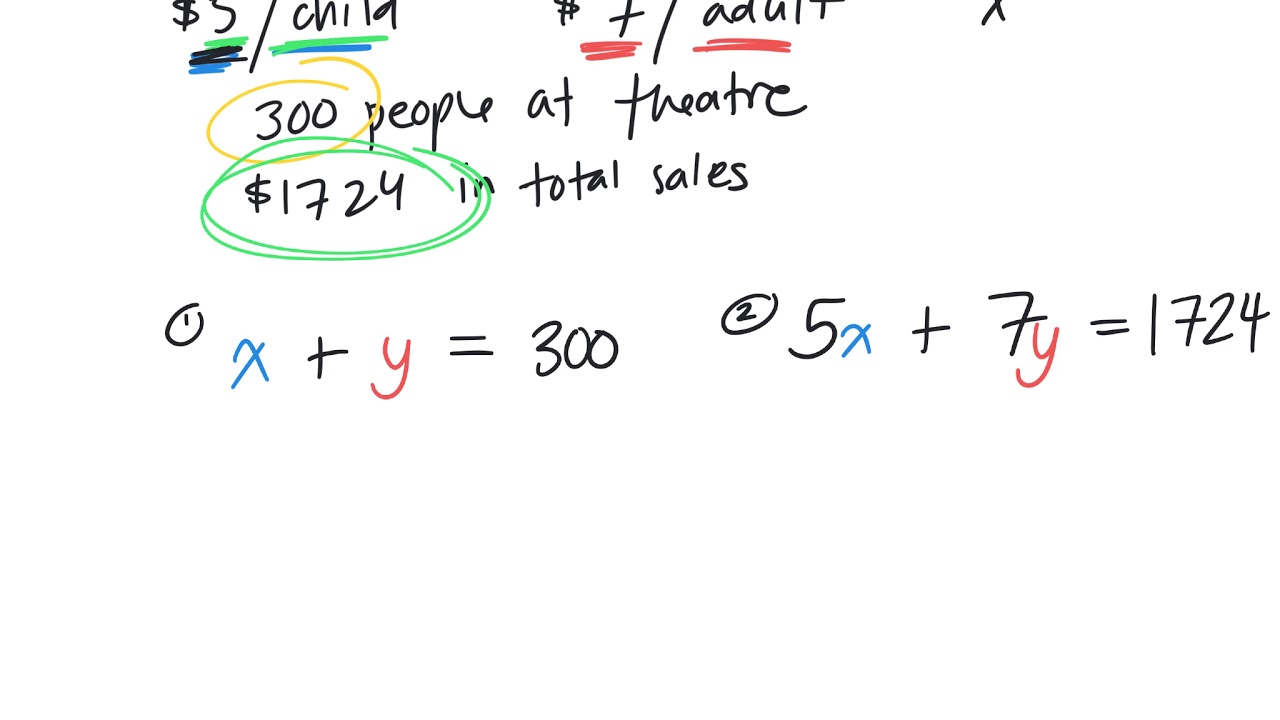 $5/child $7/adult x
300 people at theatre
$1724 in total sales
① x + y = 300 ② 5x + 7y = 1724